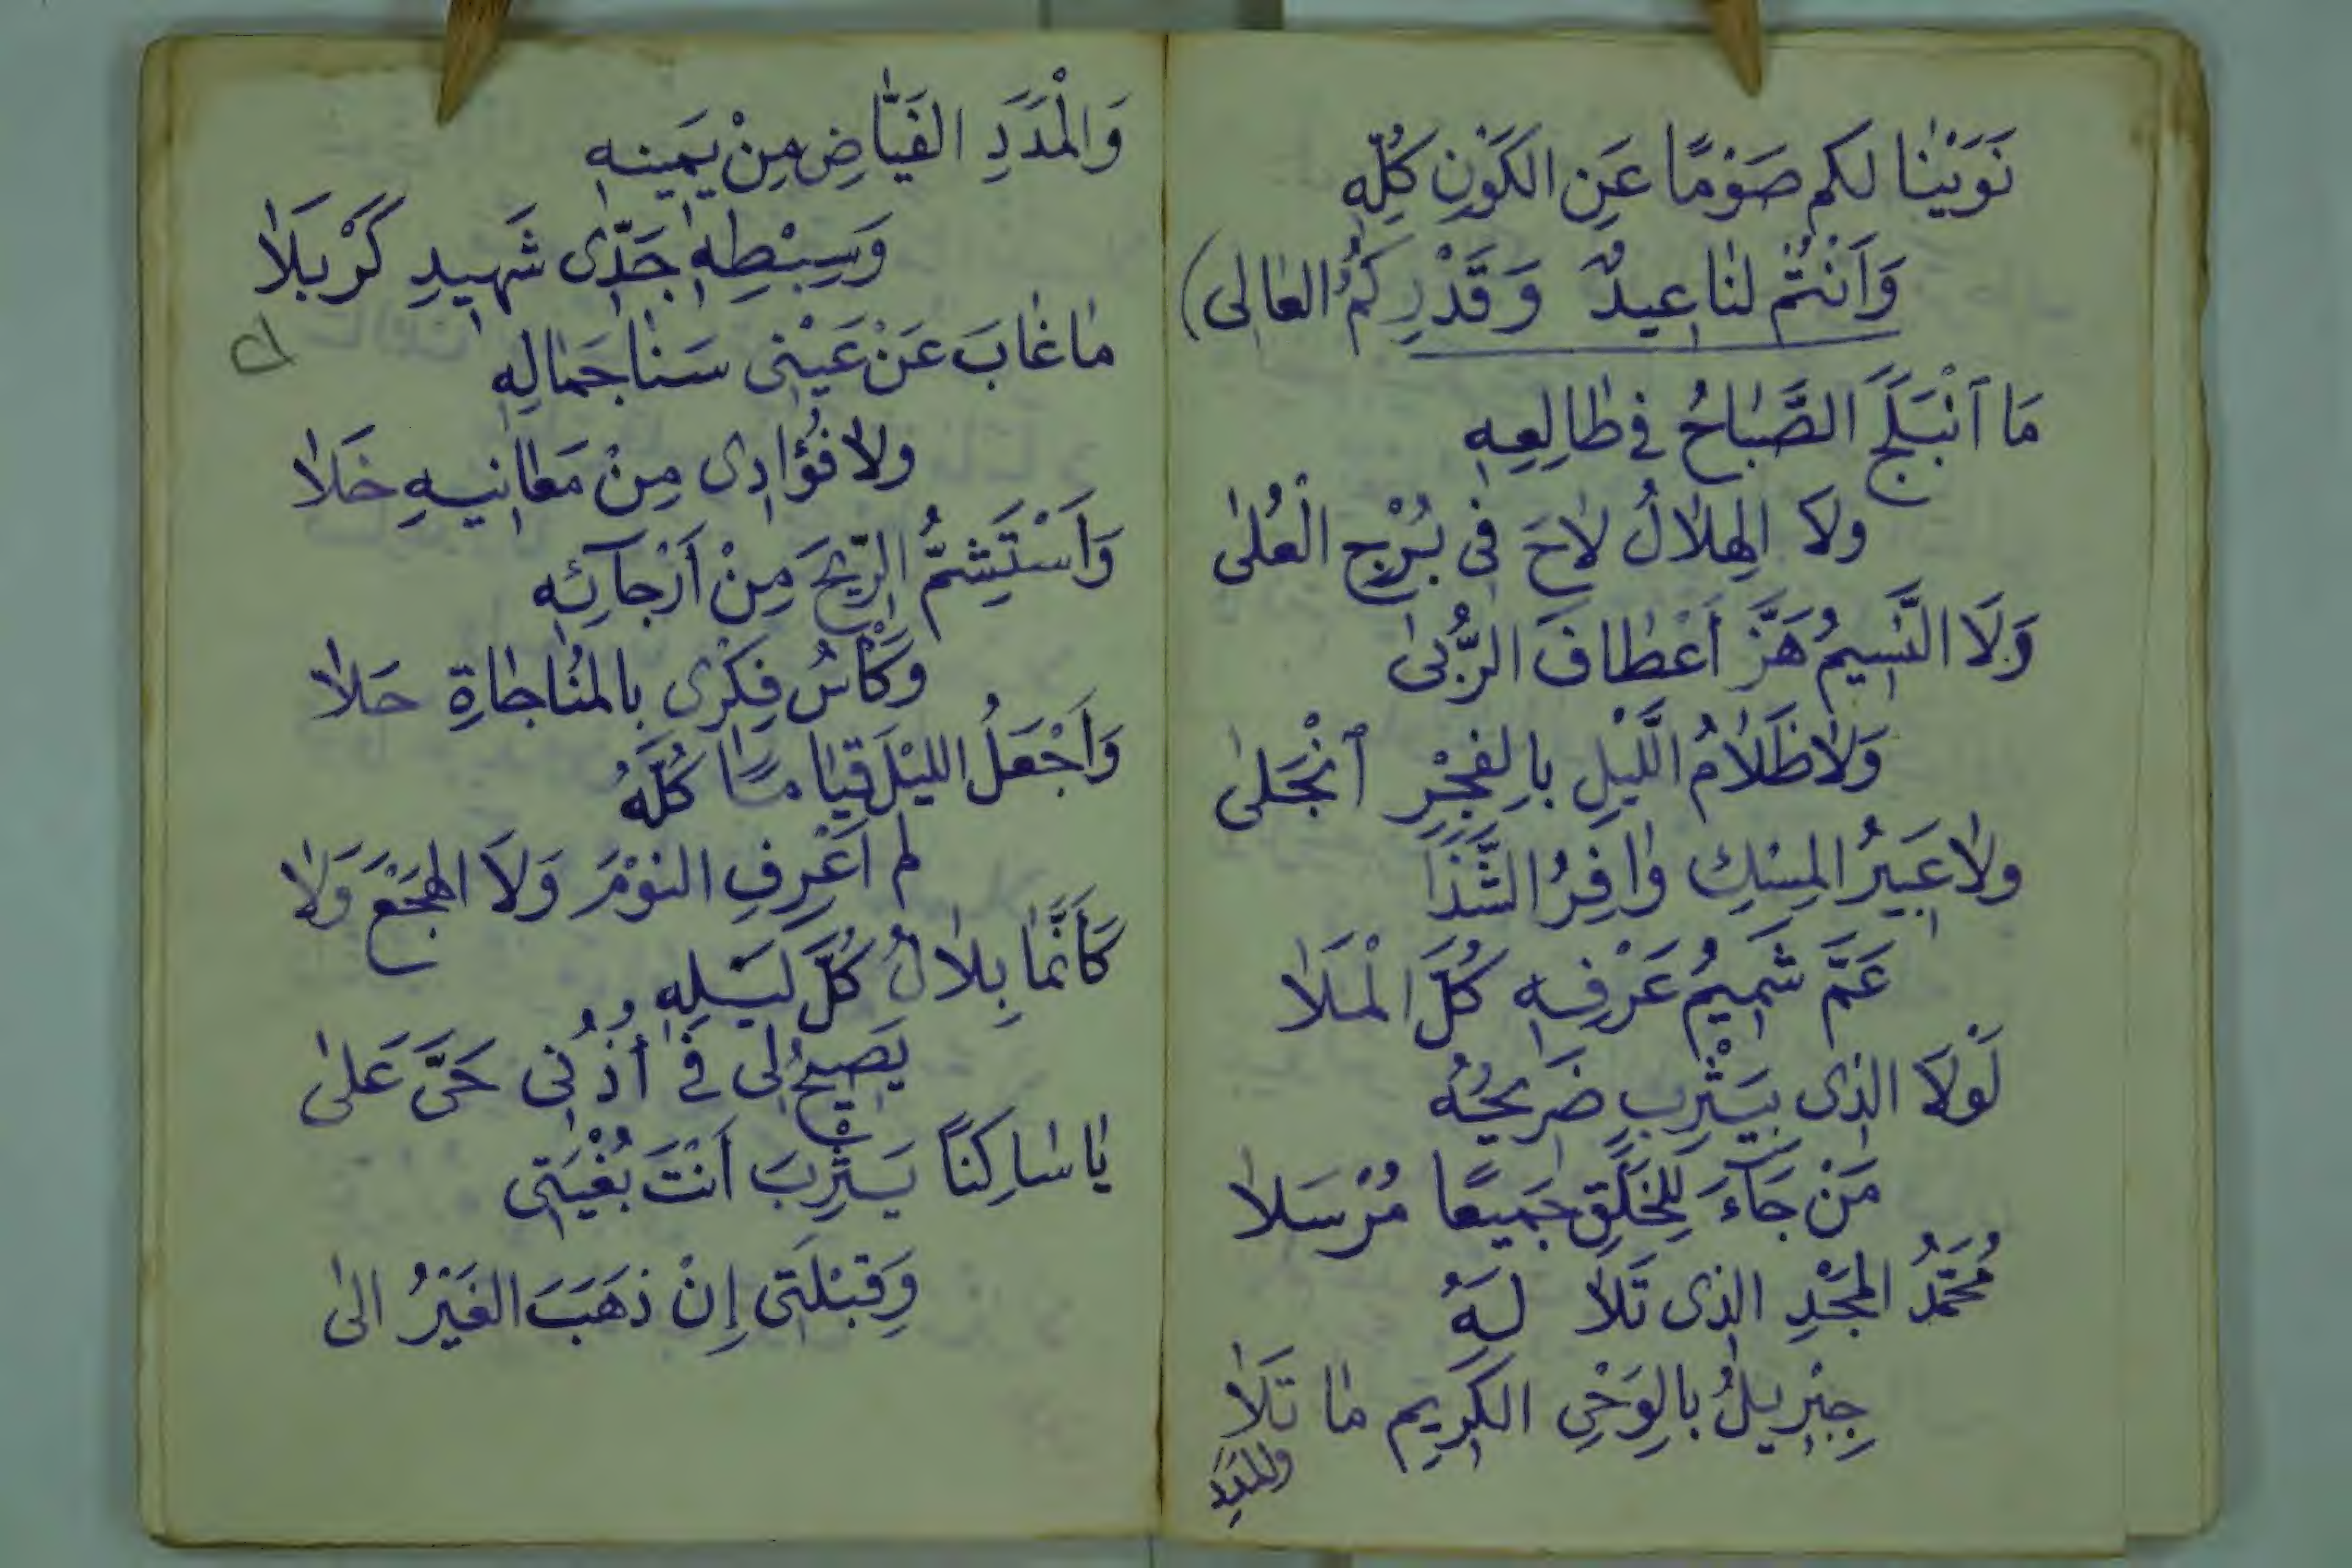 نَوَيْنَا لكم صَوْمًا عَنِ الكَوْنِ كُلِّهِ
وَأَنْتُمْ لنَا عِيدٌ وَقَدْرِكُمُ العَالى)
مَا ٱنْبَلَجَ الصَّبَاحُ فى طَالِعِهِ
ولَا الهِلَالُ لَاحَ فى بُرْجِ الْعُلىٰ
وَلَا النَّسِيمُ هَزَّ أَعْطَافَ الرُّبىٰ
وَلَا ظَلَامُ الَّليْلِ بالِفجْرِ ٱنْجَلىٰ
ولَا عَبِيرُ المِسْكِ وَافِرُ الشَّذَا
عَمَّ شَمِيمُ عَرْفِهِ كُلَّ الْمَلَا
لَوْلَا الذى بيَثْرِبٍ ضَرِيحُهُ
مَنْ جَآءَ لِلْخَلْقِ جَمِيعًا مُرْسَلَا
مُحَمَّدُ المَجْدِ الذى تَلَا لَهُ
جِبْرِيلُ بالِوَحْىِ الكَرِيمِ مَا تَلَا
والمَدَدِ
وَالْمَدَدِ الفَيَّاضِ مِنْ يَمِينِهِ
وَسِبْطِهِ جَدِّى شَهِيدِ كَرْبَلَا
مَا غَابَ عَنْ عَيْنِى سَنَا جَمَالِهِ
ولَا فُؤَادِى مِنْ مَعَانِيهِ خَلَا
وَأَسْتَشِمُّ الرِّيحَ مِنْ أَرْجَآئِهِ
وَكَأْسُ فِكْرِى بالمُنَاجَاةِ حَلَا
وَأَجْعَلُ الليْلَ قِيَامًا كُلَّهُ
لم أَعْرِفِ النوْمَ وَلَا الهَجْعَ وَلَا
كَأَنَّمَا بِلَالُ كُلَّ لَيْلِهِ
يَصِيحُ لى فى أُذُنِى حَىَّ عَلىٰ
يَا سَاكِنًا يَثْرِبَ أَنْتَ بُغْيَتِى
وَقِبْلَتِى إِنْ ذهَبَ الغَيْرُ الىٰ